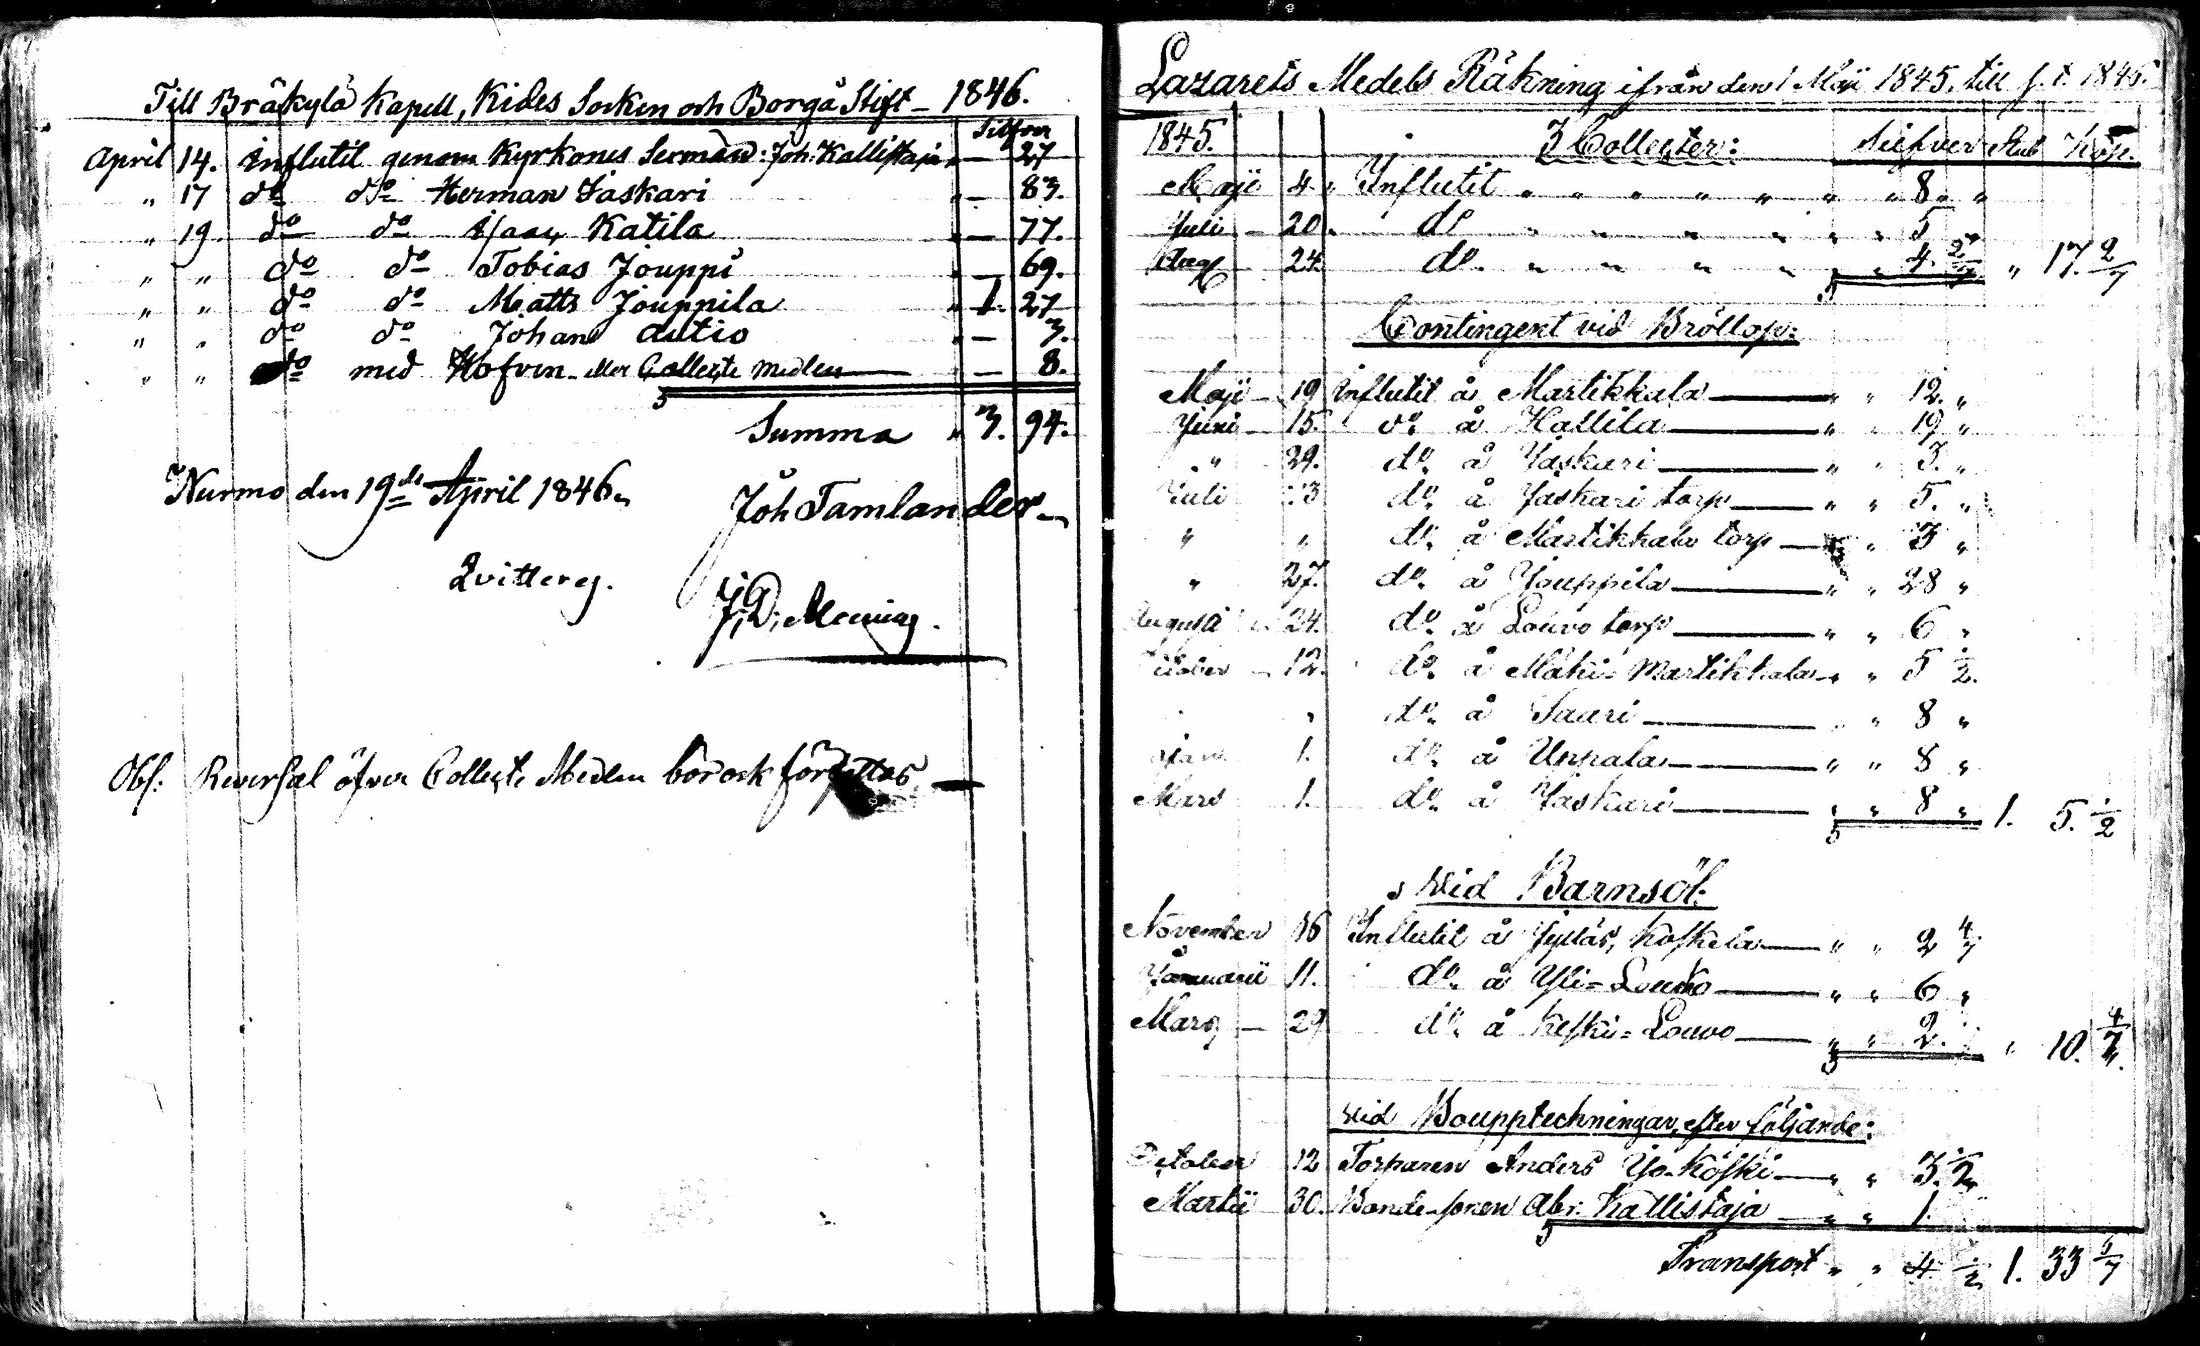 Till Bräkylä Kapell, Kides Socken och Borgå Stift – 1846.
Silfver
April 14. Influtit genom Kyrkones Sexmän: Joh. Kallistaja " — 27
" 17 do do Herman Jaskari " — 83.
" 19 do do Isaac Katila " — 77.
" " do do Tobias Jouppi " — 69.
" " do do Matts Jouppila " 1. 27
" " do do Johan Autio " — 3.
" " do med Håfven eller Collecte medlen — — 8.
Summa " 3. 94.
Nurmo den 19de April 1846.
Joh Tamlander
Qvitterej.
Obs: Reversal öfver Collect Medlen bör ock författas —
Lazarets Medels Räkning ifrån den 1 Maji 1845, till s. t. 1846.
1845. 3 Collecter: Silfver Rub Kop.
Maji 4 Influtit " " " " " " 8 "
Juli – 20 do " " " " " " 5
Aug 24. do. " " " " " " 4. 2/7 " 17. 2/7
Contingent vid Bröllop:
Maji – 19 Influtit å Martikkala — " " 12. "
Juni – 15. do å Hallila — " " 19 "
" 29. do å Jaskari — " " 3. "
Juli 13 do. å Jaskari torp — " " 5. "
" " do. å Martikkala torp — " " 3 "
" 27. do. å Jouppila — " " 28 "
Augusti 24. do å Louvo torp — " " 6 "
October – 12. do å Mäki-Martikkala " " 5 1/2.
" do. å Saari — " " 8 "
Jan 1. do. å Uppala — " " 8 "
Mars 1. do. å Jaskari — " " 8 " 1. 5. 1/2
vid Barnsöl:
November 16 Influtit å Koskela — " " 2 4/7
Januarii 11. do. å Yli-Louko — " " 6 "
Mars – 29 do. å Keski-Louvo — " " 2. " 10. 4/7.
vid Boupptechningar, efter följande:
October 12 Torparen Anders Yo-Koski — " " 3. 1/2
Martii 30. Bonde-sonen Abr. Kallistaja — " " 1.
Transport " " 4 1/2 1. 33